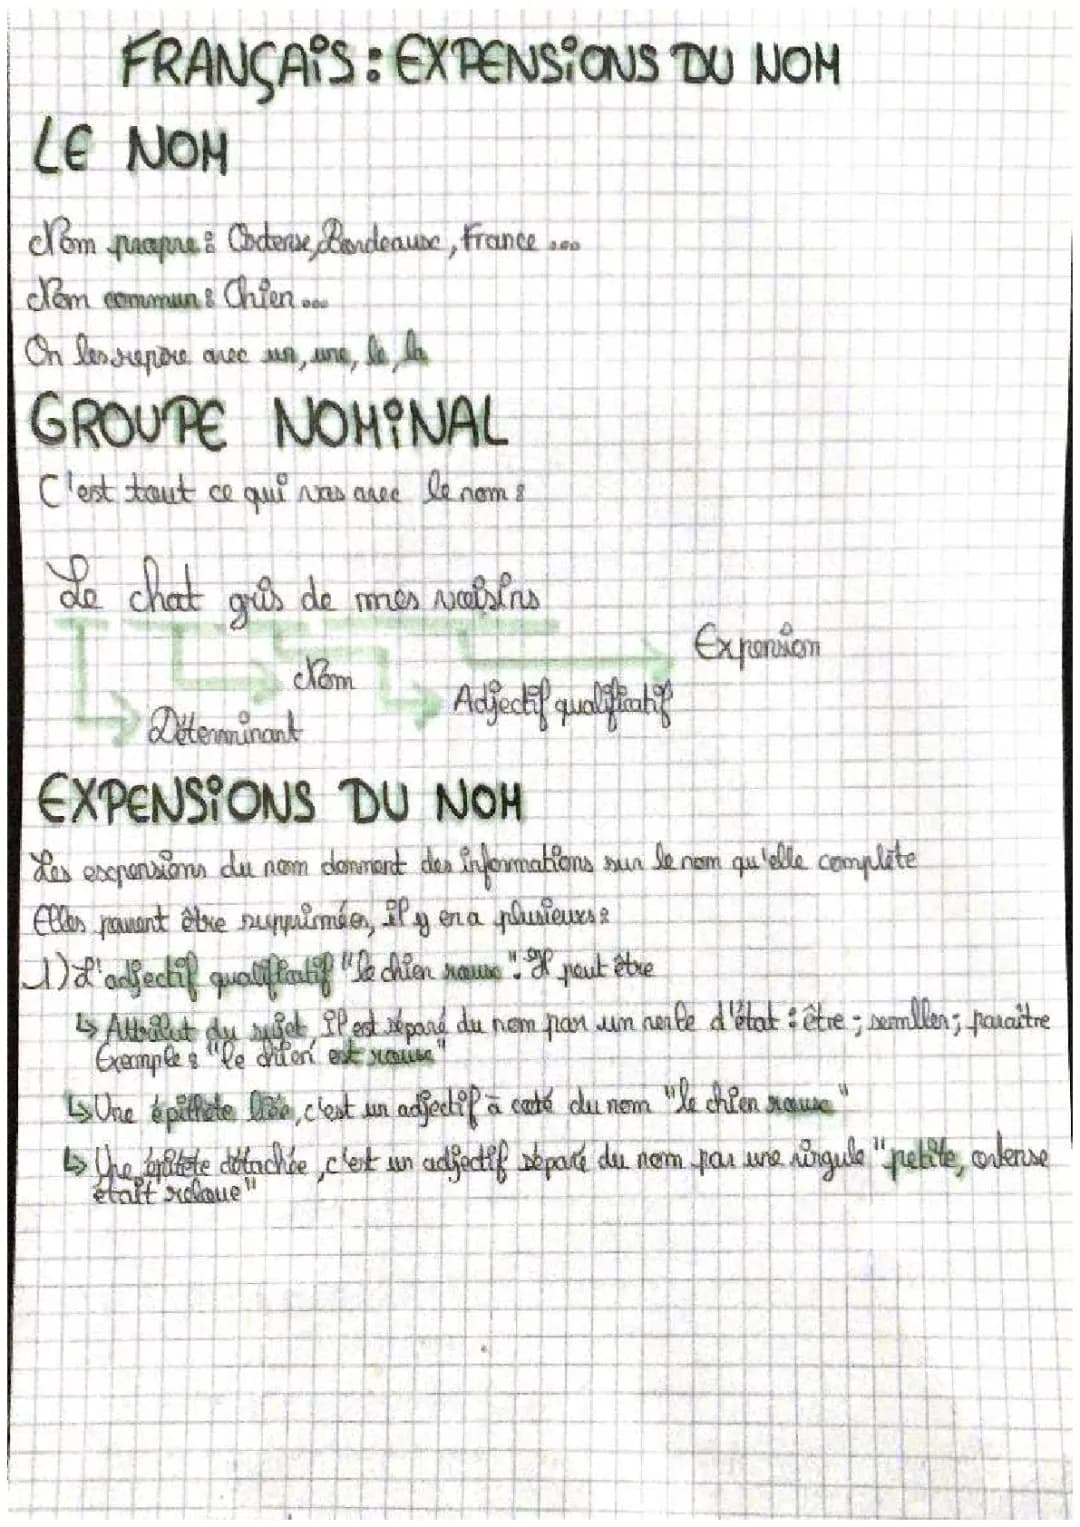 FRANÇAIS : EXPENSIONS DU NOM
LE NOM
Nom propre : Ortense, Bordeaux, France ...
Nom commun : Chien ...
On les repère avec un, une, le, la
GROUPE NOMINAL
C'est tout ce qui vas avec le nom :
Le chat gris de mes voisins
Expension
Nom
Adjectif qualificatif
Déterminant
EXPENSIONS DU NOM
Les expensions du nom donnent des informations sur le nom qu'elle complète
Elles peuvent être supprimées, il y en a plusieurs :
1) L'adjectif qualificatif "le chien roux". Il peut être
↳ Attribut du sujet. Il est séparé du nom par un verbe d'état : être ; sembler ; paraître
Exemple : "le chien est roux"
↳ Une épithète liée, c'est un adjectif à coté du nom "le chien roux"
↳ Une épitète détachée, c'est un adjectif séparé du nom par une virgule "petite, ortense
était"